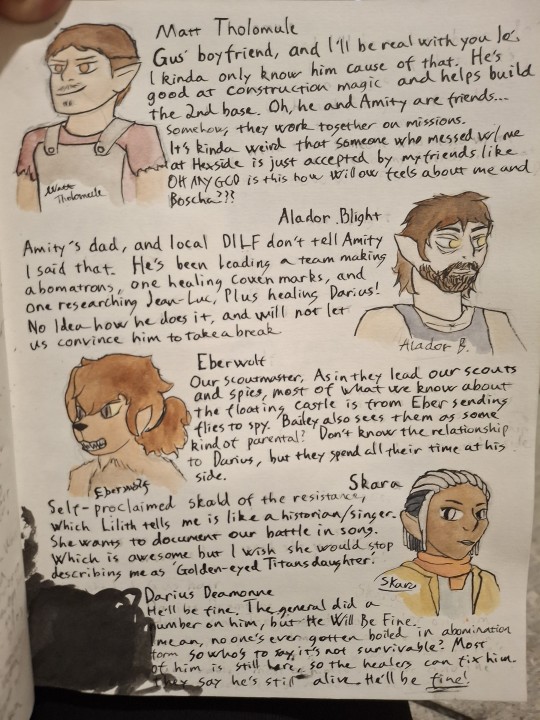 Matt Tholomule
Gus' boyfriend, and I'll be real with you Jo,
I kinda only know him cause of that. He's
good at construction magic and helps build
the 2nd base. Oh, he and Amity are friends...
somehow, they work together on missions.
It's kinda weird that someone who messed w/ me
at Hexside is just accepted by my friends like
OH MY GOD is this how Willow feels about me and
Boscha???
Matt
Tholomule
Alador Blight
Amity's dad, and local DILF don't tell Amity
I said that. He's been leading a team making
abomatrons, one healing Coven marks, and
one researching Jean-Luc, Plus healing Darius!
No Idea how he does it, and will not let
us convince him to take a break
Alador B.
Eberwolf
Our scoutmaster, As in they lead our scouts
and spies, most of what we know about
the floating castle is from Eber sending
flies to spy. Bailey also sees them as some
kind of parental? Don't know the relationship
to Darius, but they spend all their time at his
side.
Eberwolf
Skara
Self-proclaimed skald of the resistance,
which Lilith tells me is like a historian/singer.
She wants to document our battle in song.
Which is awesome but I wish she would stop
describing me as 'Golden-eyed Titans daughter.'
Skara
Darius Deamonne
He'll be fine. The general did a
number on him, but He Will Be Fine.
I mean, no one's ever gotten boiled in abomination
form so who's to say it's not survivable? Most
of him is still here, so the healers can fix him.
They say he's still alive. He'll be fine!